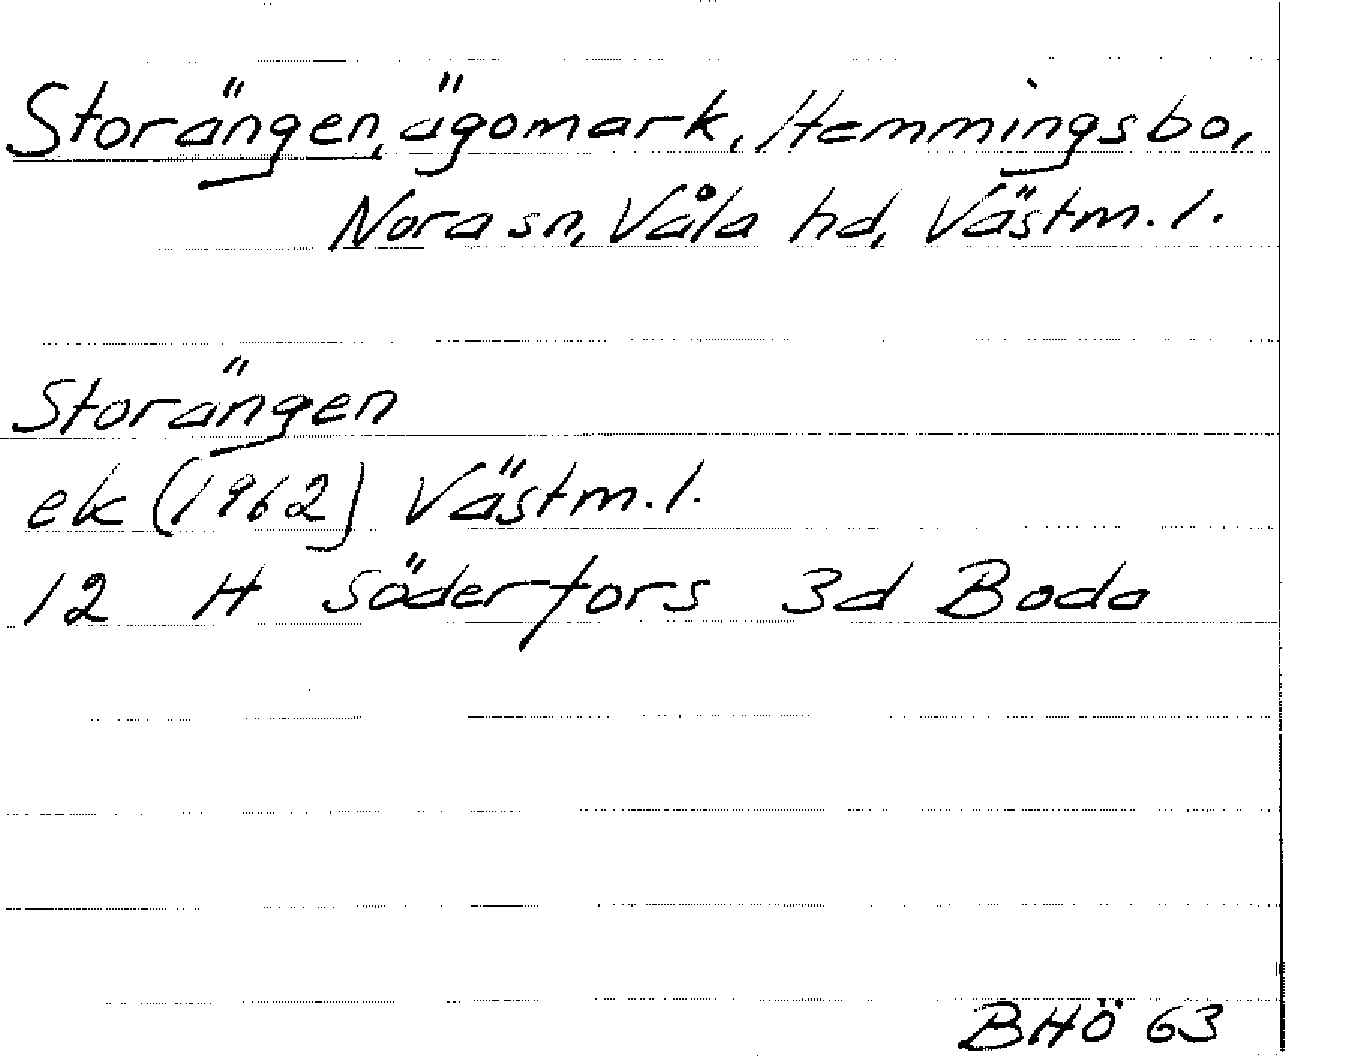 Storängen, ägomark, Hemmingsbo,
Nora sn, Våla hd, Västm. l.
Storängen
ek (1962) Västm. l.
12 H Söderfors 3d Boda
BHÖ 63